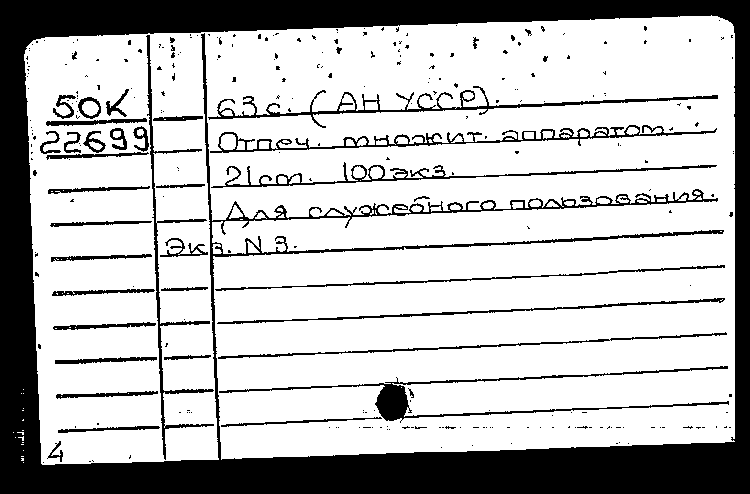 50К 63 с. (АН УССР).
22699 Отпеч. множит. аппаратом.
21 cm. 100 экз.
Для служебного пользования.
Экз. N 3.
4